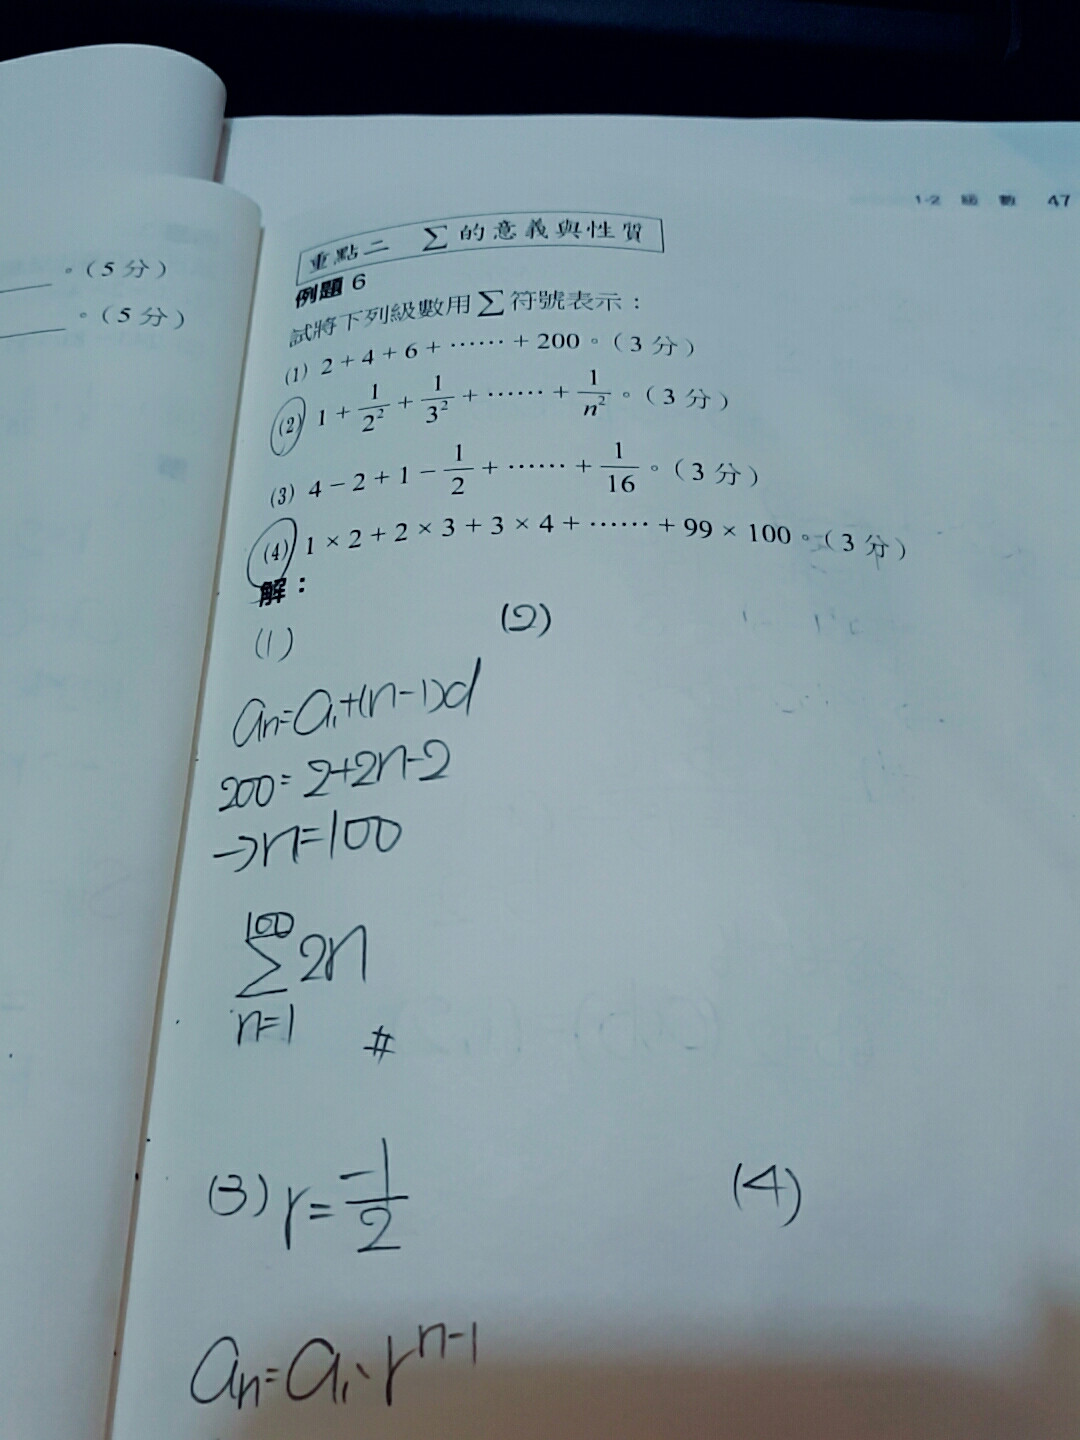 1-2 級數 47
。(5 分)
。(5 分)
重點二 Σ的意義與性質
例題 6
試將下列級數用Σ符號表示：
(1) 2 + 4 + 6 + …… + 200。(3 分)
(2) 1 + 1/2² + 1/3² + …… + 1/n²。(3 分)
(3) 4 − 2 + 1 − 1/2 + …… + 1/16。(3 分)
(4) 1 × 2 + 2 × 3 + 3 × 4 + …… + 99 × 100。(3 分)
解：
(1)
aₙ=a₁+(n-1)d
200=2+2n-2
→n=100
100
Σ2n
n=1 #
(2)
(3) r=-1/2
aₙ=a₁·rⁿ⁻¹
(4)